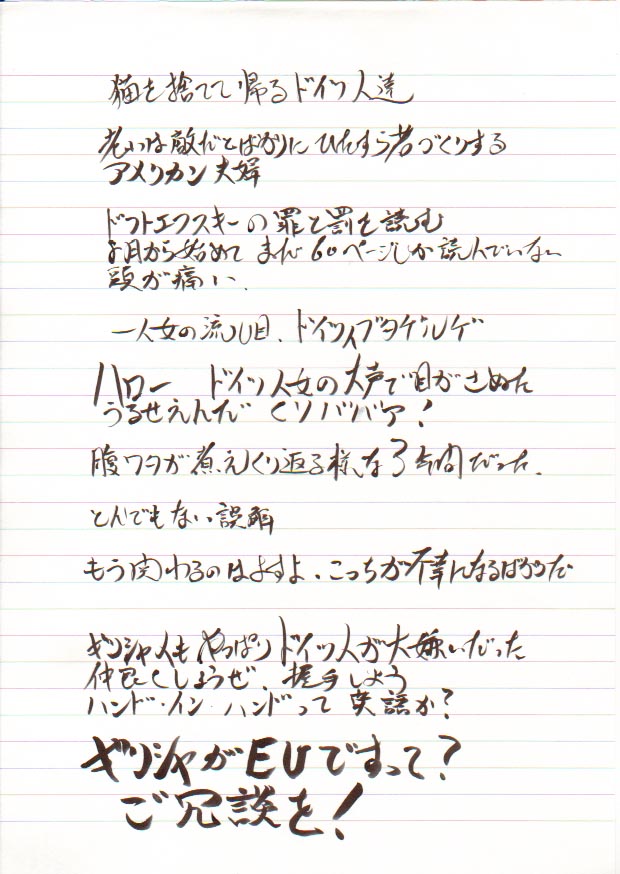 猫を捨てて帰るドイツ人達
老いは敵だとばかりに ひたすら若づくりする
アメリカン夫婦
ドフトエフスキーの罪と罰を読む
月から始めて まだ60ページしか読んでいない
頭が痛い、
一人女の流し目、
ハロー ドイツ人女の大声で目がさめた
うるせえんだ クソババア!
腹ワタが煮えくり返る様な3年間だった、
とんでもない誤解
もう関わるのはよすよ、こっちが不幸になるばかりだ
ギリシャ人も やっぱりドイツ人が大嫌いだった
仲良くしようぜ、握手しよう
ハンド・イン ハンドって 英語か?
ギリシャがEUですって?
ご冗談を!